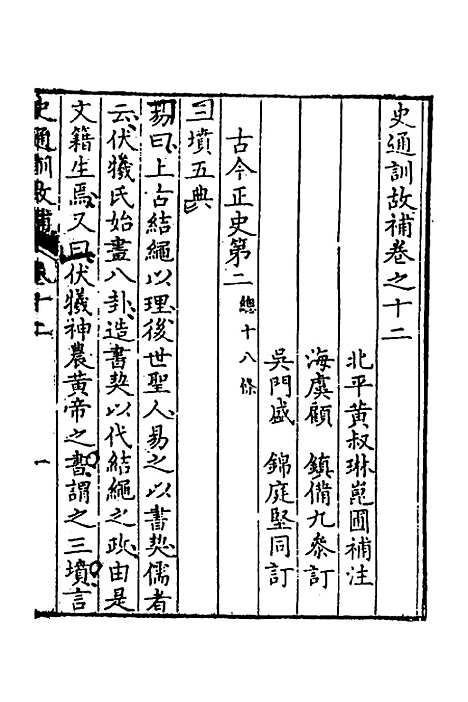 史通訓故補卷之十二
北平黃叔琳崑圃補注
海虞顧　鎮備九參訂
吳門盛　錦庭堅同訂
古今正史第二 總十八條
三墳五典
易曰上古結繩以理後世聖人易之以書契儒者
云伏犧氏始畫八卦造書契以代結繩之政由是
文籍生焉又曰伏犧神農黃帝之書謂之三墳言
史通訓故補 卷十二 一